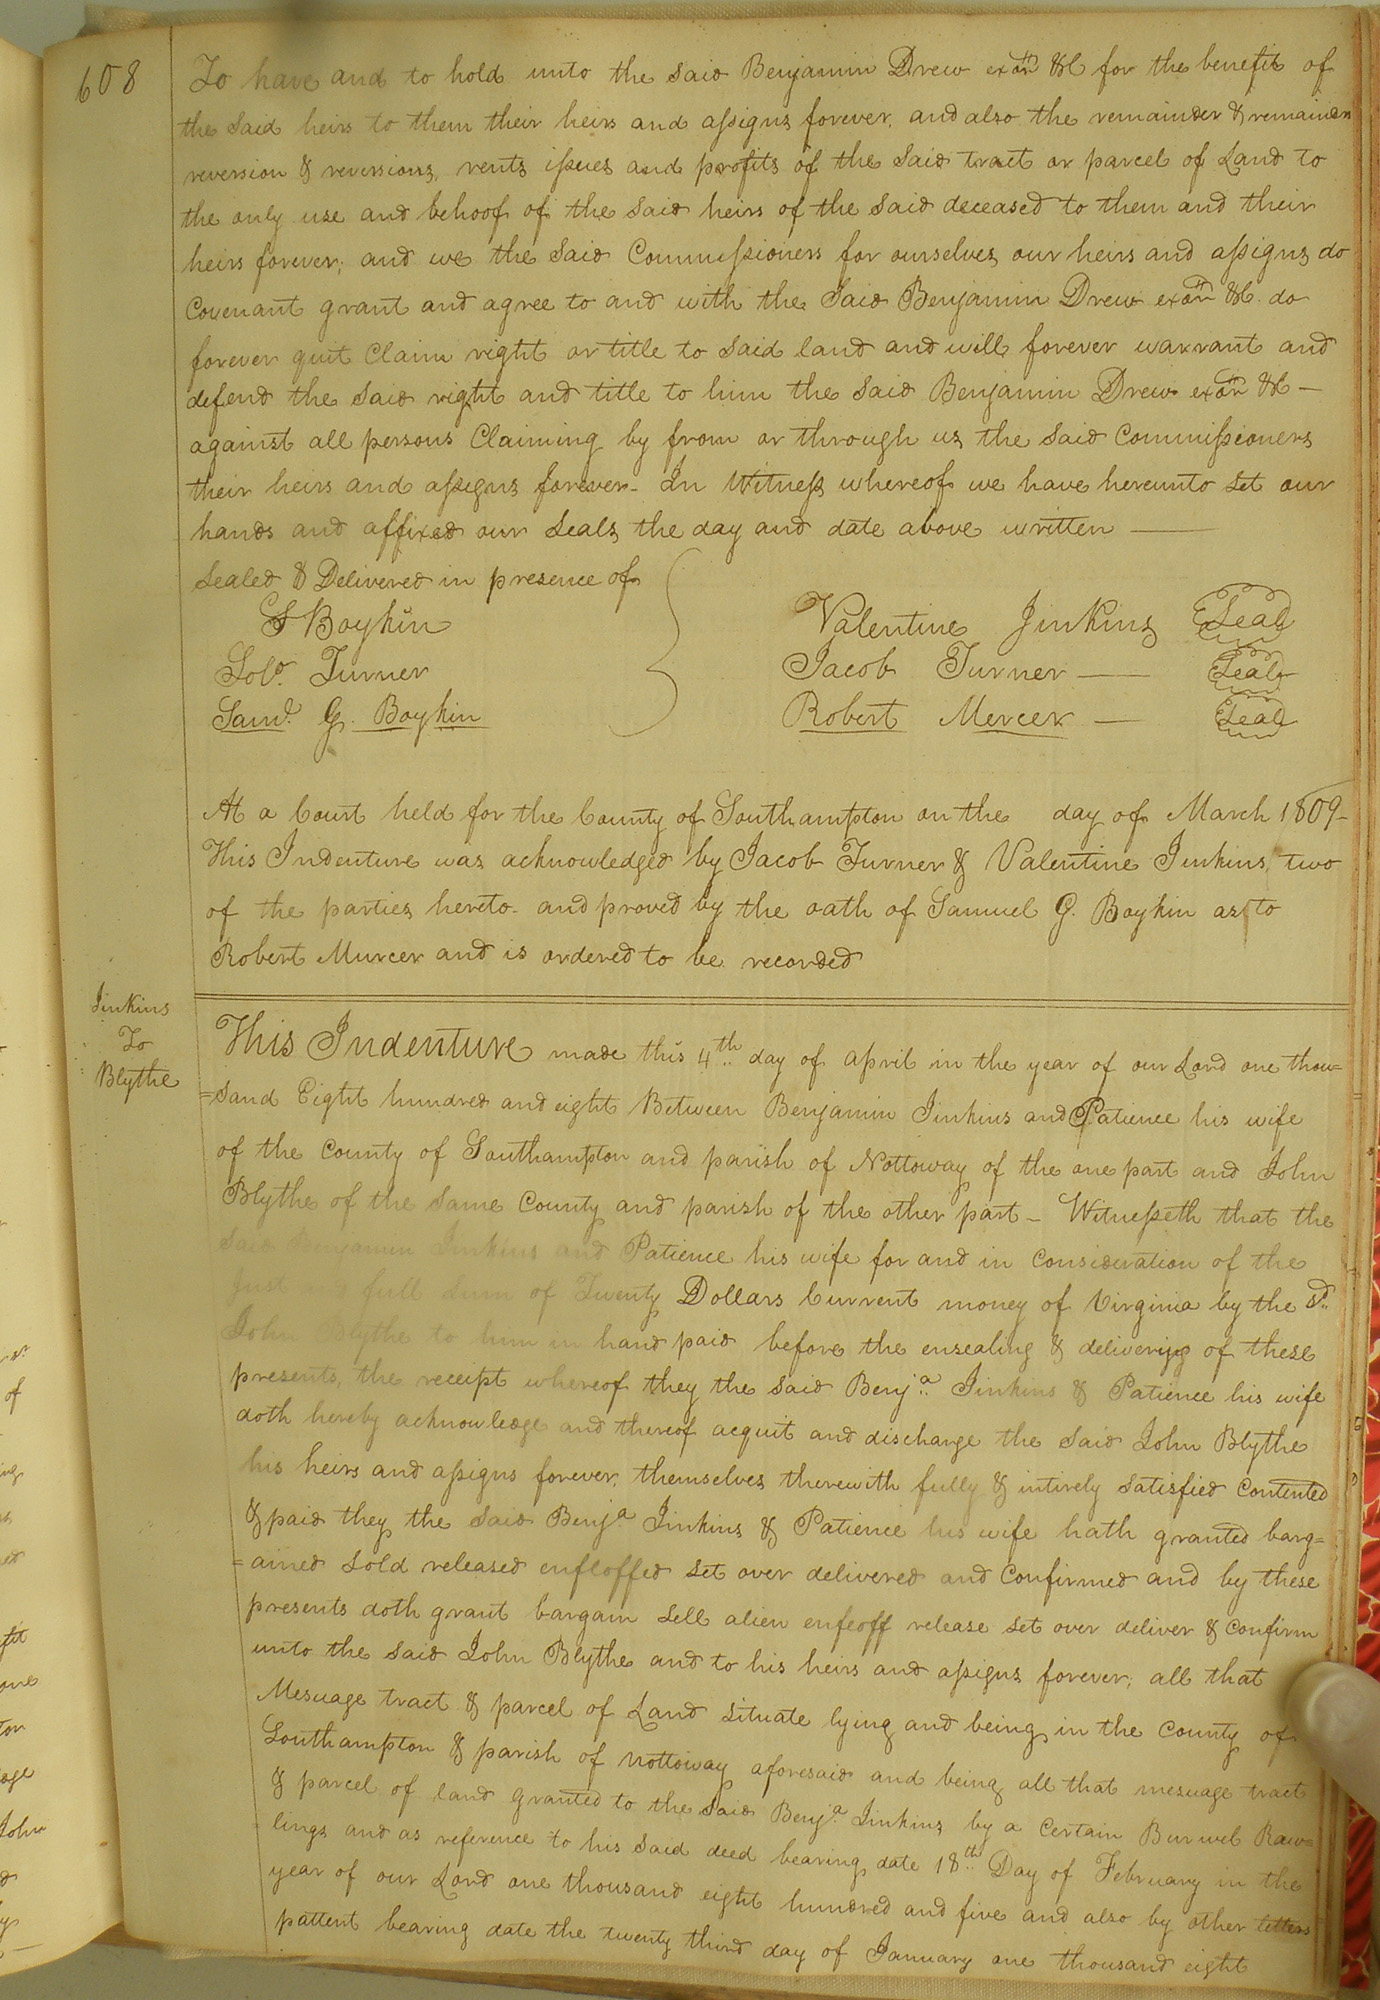 608
To have and to hold unto the said Benjamin Drew exōr &C for the benefit of
the said heirs to them their heirs and assigns forever. and also the remainder & remainders
reversion & reversions, rents issues and profits of the said tract or parcel of Land to
the only use and behoof of the said heirs of the said deceased to them and their
heirs forever; and we the said Commissioners for ourselves our heirs and assigns do
Covenant grant and agree to and with the Said Benjamin Drew exōr &C. do
forever quit Claim right or title to said land and will forever warrant and
defend the said right and title to him the said Benjamin Drew exōr &C —
against all persons Claiming by from or through us the said Commissioners
their heirs and assigns forever - In Witness whereof we have hereunto set our
hands and affixed our seals the day and date above written —
Sealed & Delivered in presence of
Boykin
Solo. Turner
Saml. G. Boykin
Valentine Jinkins Seal
Jacob Turner — Seal
Robert Mercer — Seal
At a Court held for the County of Southampton on the day of March 1809 -
This Indenture was acknowledged by Jacob Turner & Valentine Jinkins, two
of the parties hereto. and proved by the oath of Samuel G. Boykin as to
Robert Murcer and is ordered to be recorded
Jinkins
To
Blythe
This Indenture made this 4th day of april in the year of our Lord one thou=
=sand Eight hundred and eight Between Benjamin Jinkins and Patience his wife
of the County of Southampton and parish of Nottoway of the one part and John
Blythe of the same County and parish of the other part - Witnesseth that the
said Benjamin Jinkins and Patience his wife for and in consideration of the
just and full sum of Twenty Dollars Current money of Virginia by the sd.
John Blythe to him in hand paid before the ensealing & delivering of these
presents, the receipt whereof they the said Benja. Jinkins & Patience his wife
doth hereby acknowledge and thereof acquit and discharge the said John Blythe
his heirs and assigns forever. themselves therewith fully & intirely satisfied Contented
& paid they the said Benja. Jinkins & Patience his wife hath granted barg=
=ained sold released enfeoffed set over delivered and Confirmed and by these
presents doth grant bargain sell alien enfeoff release set over deliver & Confirm
unto the said John Blythe and to his heirs and assigns forever; all that
Mesuage tract & parcel of Land situate lying and being in the County of
Southampton & parish of Nottoway aforesaid and being all that mesuage tract
& parcel of land granted to the said Benja. Jinkins by a Certain Burwel Raw=
lings and as reference to his said deed bearing date 18th Day of February in the
year of our Lord one thousand eight hundred and five and also by other letters
pattent bearing date the twenty third day of January one thousand eight